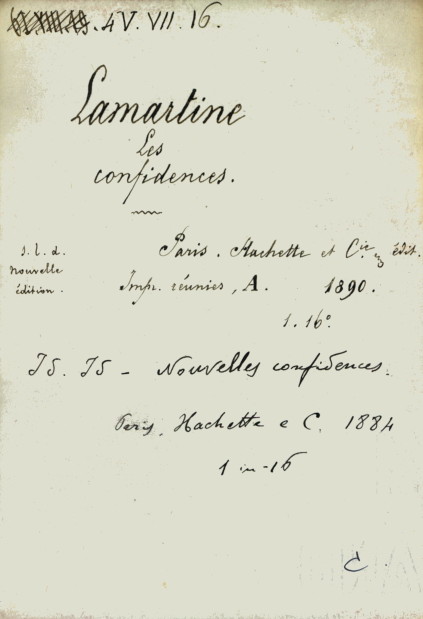 4V. VII. 16.
Lamartine
Les
confidences.
s. l. d. Paris. Hachette et Cie édit.
Nouvelle
édition. Imp. réunies, A. 1890.
1. 16°.
Id. Id - Nouvelles confidences.
Paris, Hachette e C. 1884
1 in-16
C.